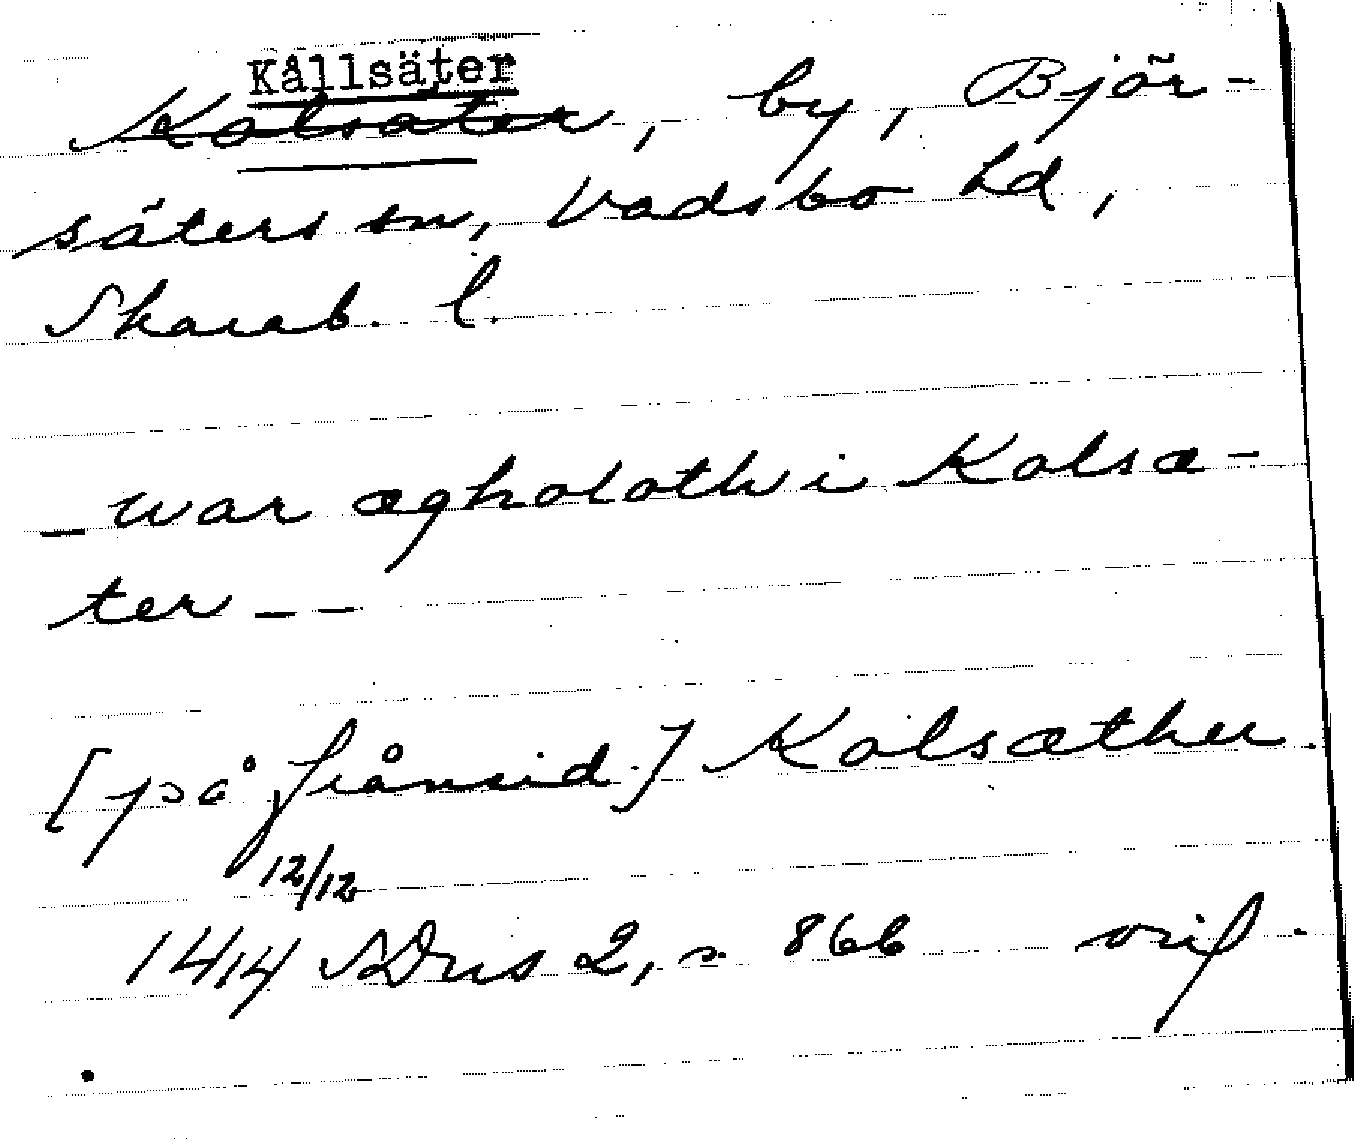 Kållsäter
Kolsäter, by, Björ-
säters sn, Vadsbo hd,
Skarab. l.
_ war ægholoth i Kolsæ-
ter _ _
[på frånsid.] Kolsæther
12/12
1414 SDns 2, s. 866 orig.